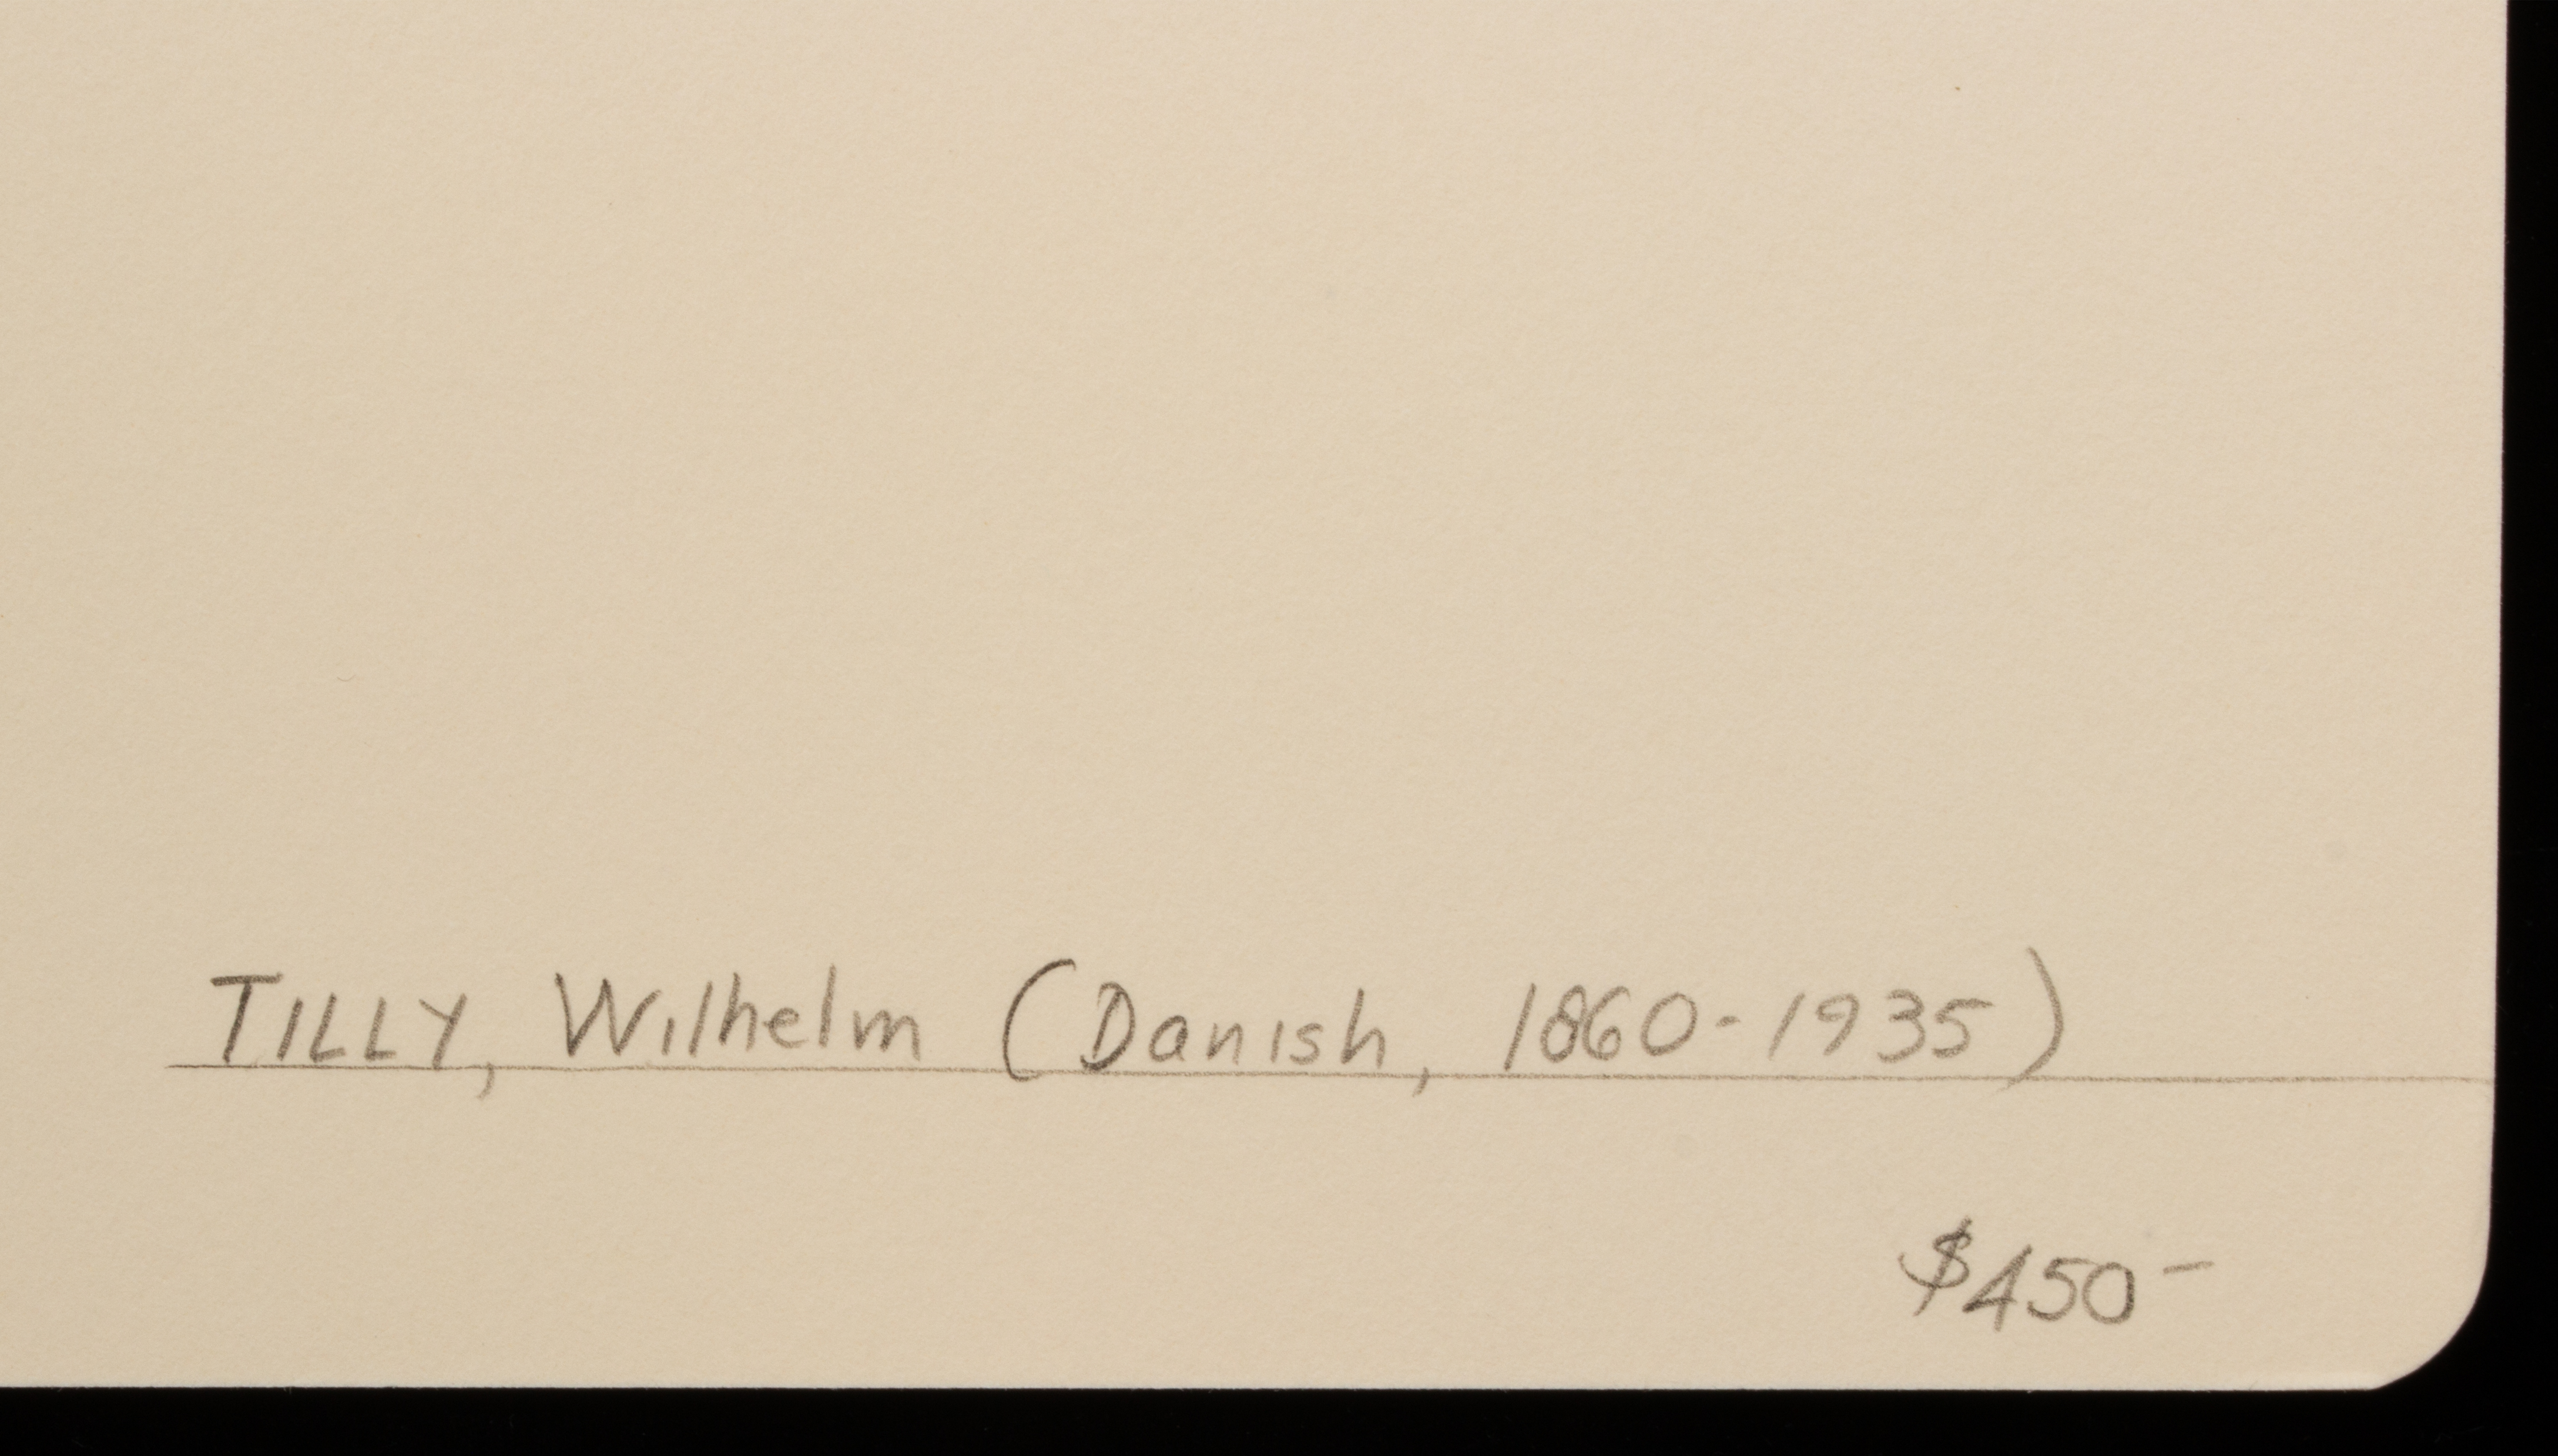 TILLY, Wilhelm (Danish, 1860-1935)
$450-